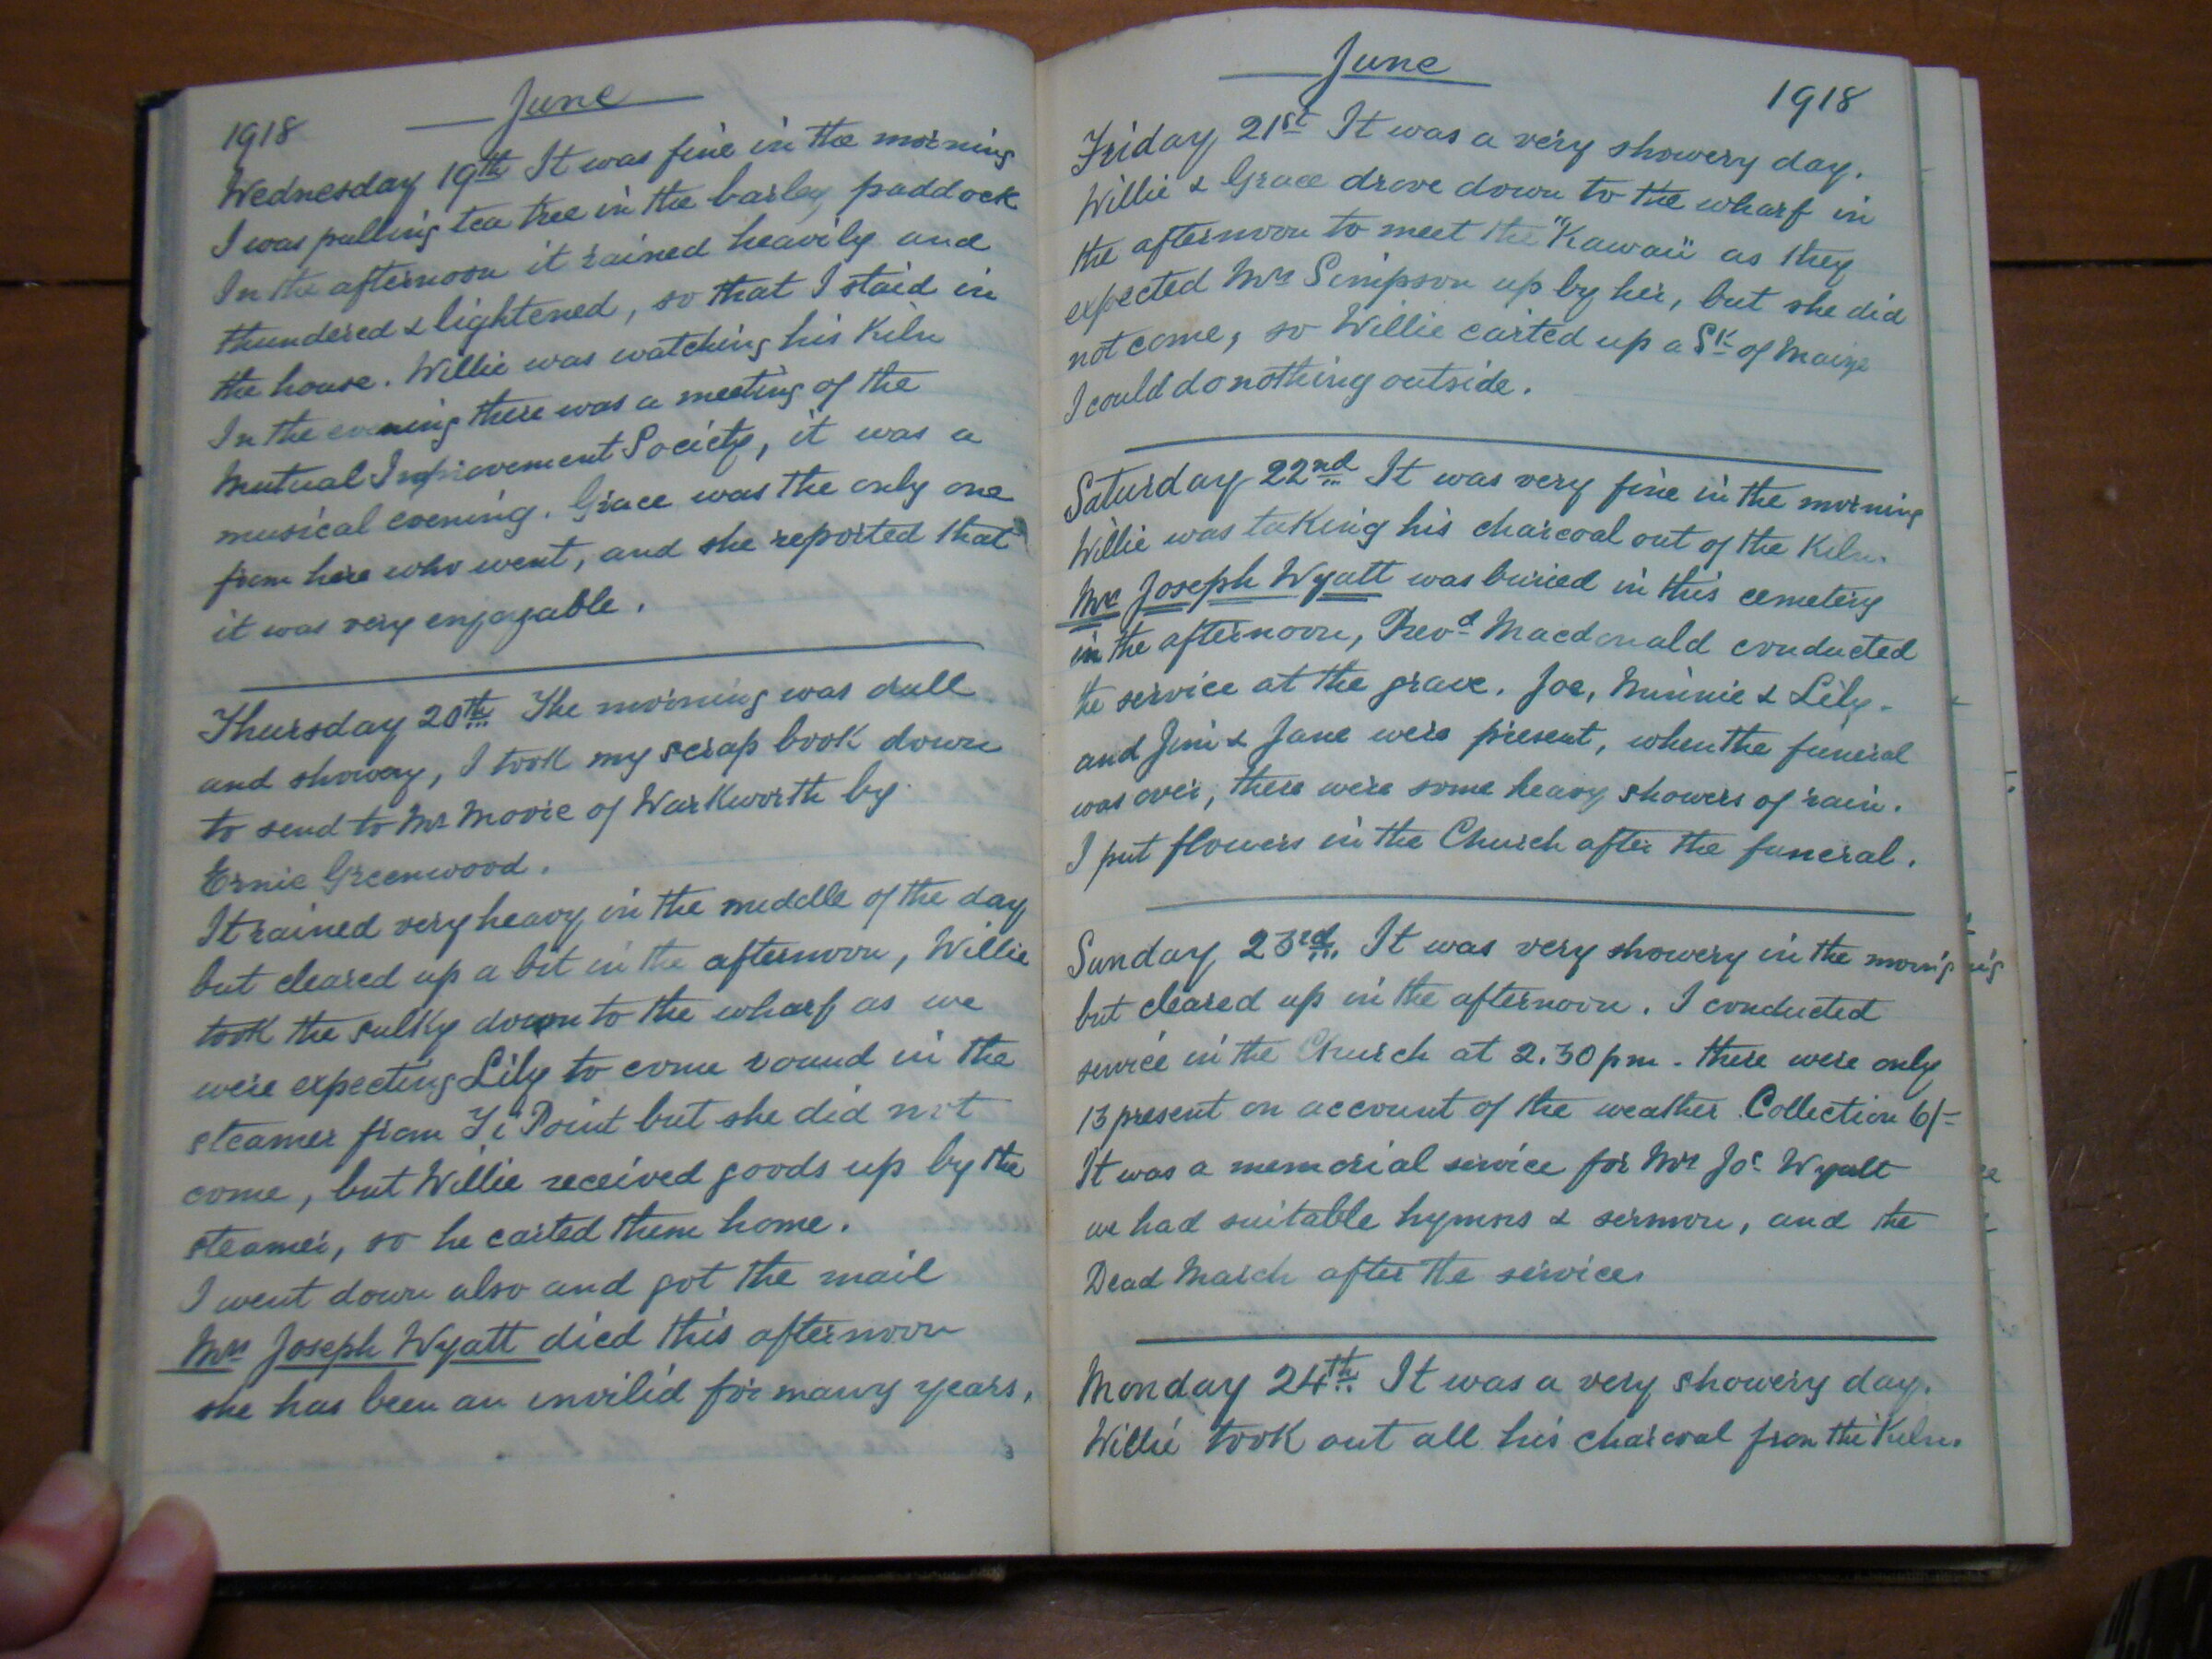 June
1918
Wednesday 19th It was fine in the morning
I was pulling tea tree in the barley paddock
In the afternoon it rained heavily and
thundered & lightened, so that I staid in
the house. Willie was watching his Kiln
In the evening there was a meeting of the
Mutual Improvement Society, it was a
musical evening. Grace was the only one
from here who went, and she reported that
it was very enjoyable.
Thursday 20th The morning was dull
and showery, I took my scrap book down
to send to Mr Moore of Warkworth by
Ernie Greenwood.
It rained very heavy in the middle of the day
but cleared up a bit in the afternoon, Willie
took the sulky down to the wharf as we
were expecting Lily to come round in the
steamer from Ti Point but she did not
come, but Willie received goods up by the
steamer, so he carted them home.
I went down also and got the mail
Mrs Joseph Wyatt died this afternoon
she has been an invilid for many years.
June
1918
Friday 21st It was a very showery day.
Willie & Grace drove down to the wharf in
the afternoon to meet the "Kawau" as they
expected Mrs Simpson up by her, but she did
not come, so Willie carted up a Sk of Maize
I could do nothing outside.
Saturday 22nd It was very fine in the morning
Willie was taking his charcoal out of the Kiln.
Mrs Joseph Wyatt was buried in this cemetery
in the afternoon, Revd Macdonald conducted
the service at the grave. Joe, Minnie & Lily.
and Jim & Jane were present, when the funeral
was over, there were some heavy showers of rain.
I put flowers in the Church after the funeral.
Sunday 23rd. It was very showery in the morning
but cleared up in the afternoon. I conducted
service in the Church at 2.30 pm. there were only
13 present on account of the weather. Collection 6/-
It was a memorial service for Mrs Jos Wyatt
we had suitable hymns & sermon, and the
Dead March after the service.
Monday 24th It was a very showery day.
Willie took out all his charcoal from the Kiln.